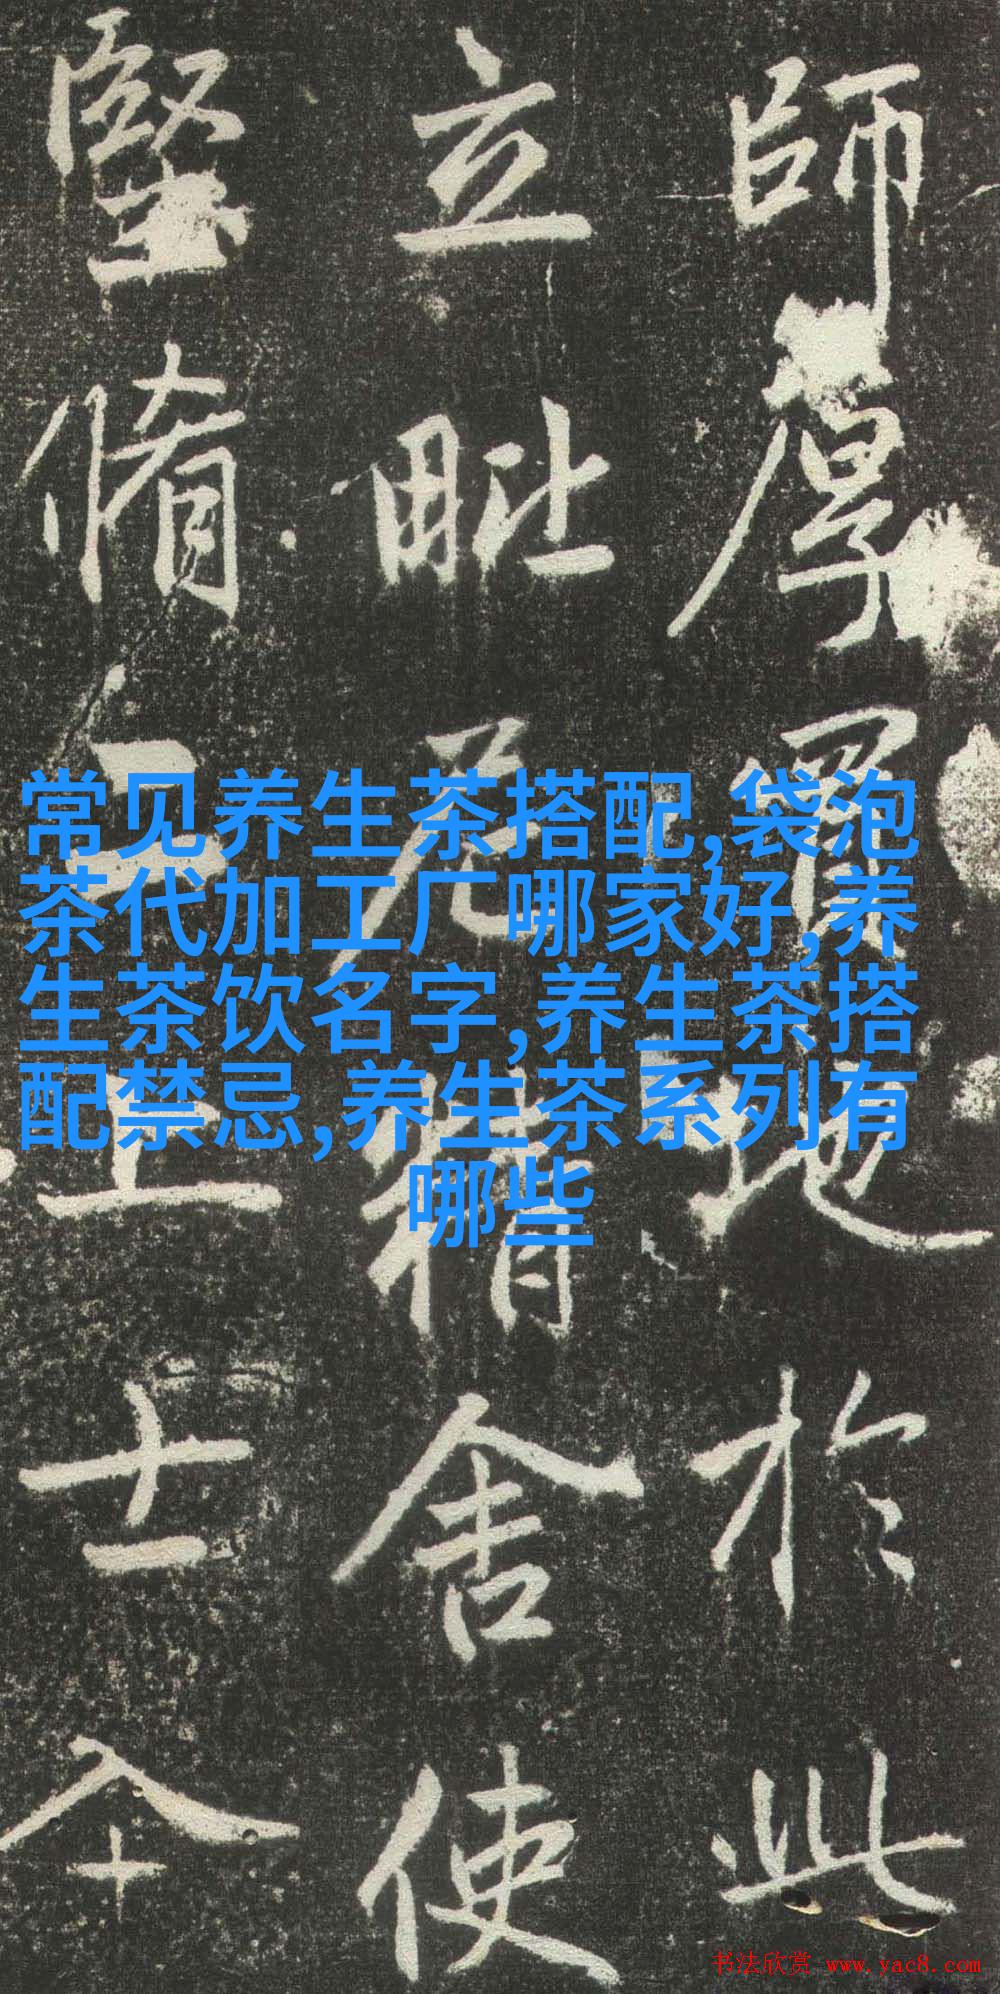 師厚買地於此
立毗尼精舍使
堅脩上
常见养生茶搭配,袋泡
茶代加工厂哪家好,养
生茶饮名字,养生茶搭
配禁忌,养生茶系列有
哪些
书法欣赏 www.yac8.com